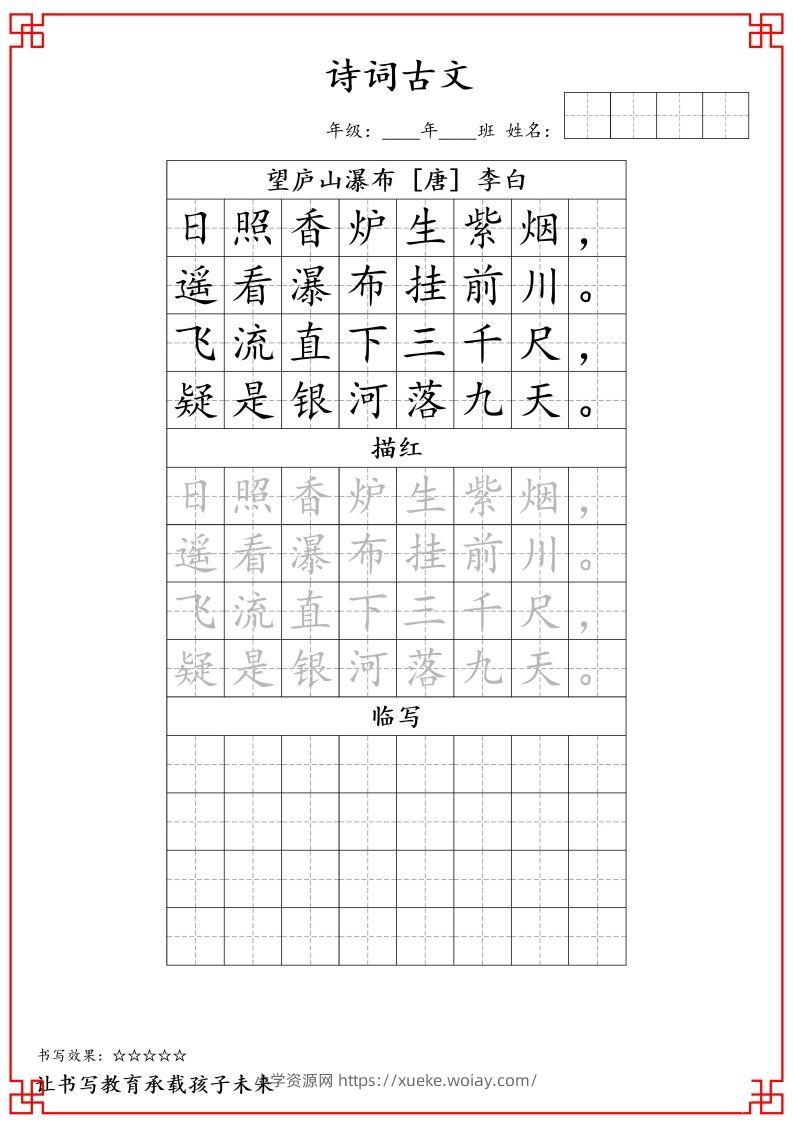 诗词古文
年级：____年____班 姓名：
望庐山瀑布［唐］李白
日照香炉生紫烟，
遥看瀑布挂前川。
飞流直下三千尺，
疑是银河落九天。
描红
日照香炉生紫烟，
遥看瀑布挂前川。
飞流直下三千尺，
疑是银河落九天。
临写
书写效果：☆☆☆☆☆
让书写教育承载孩子未来
小学资源网 https://xueke.woiay.com/